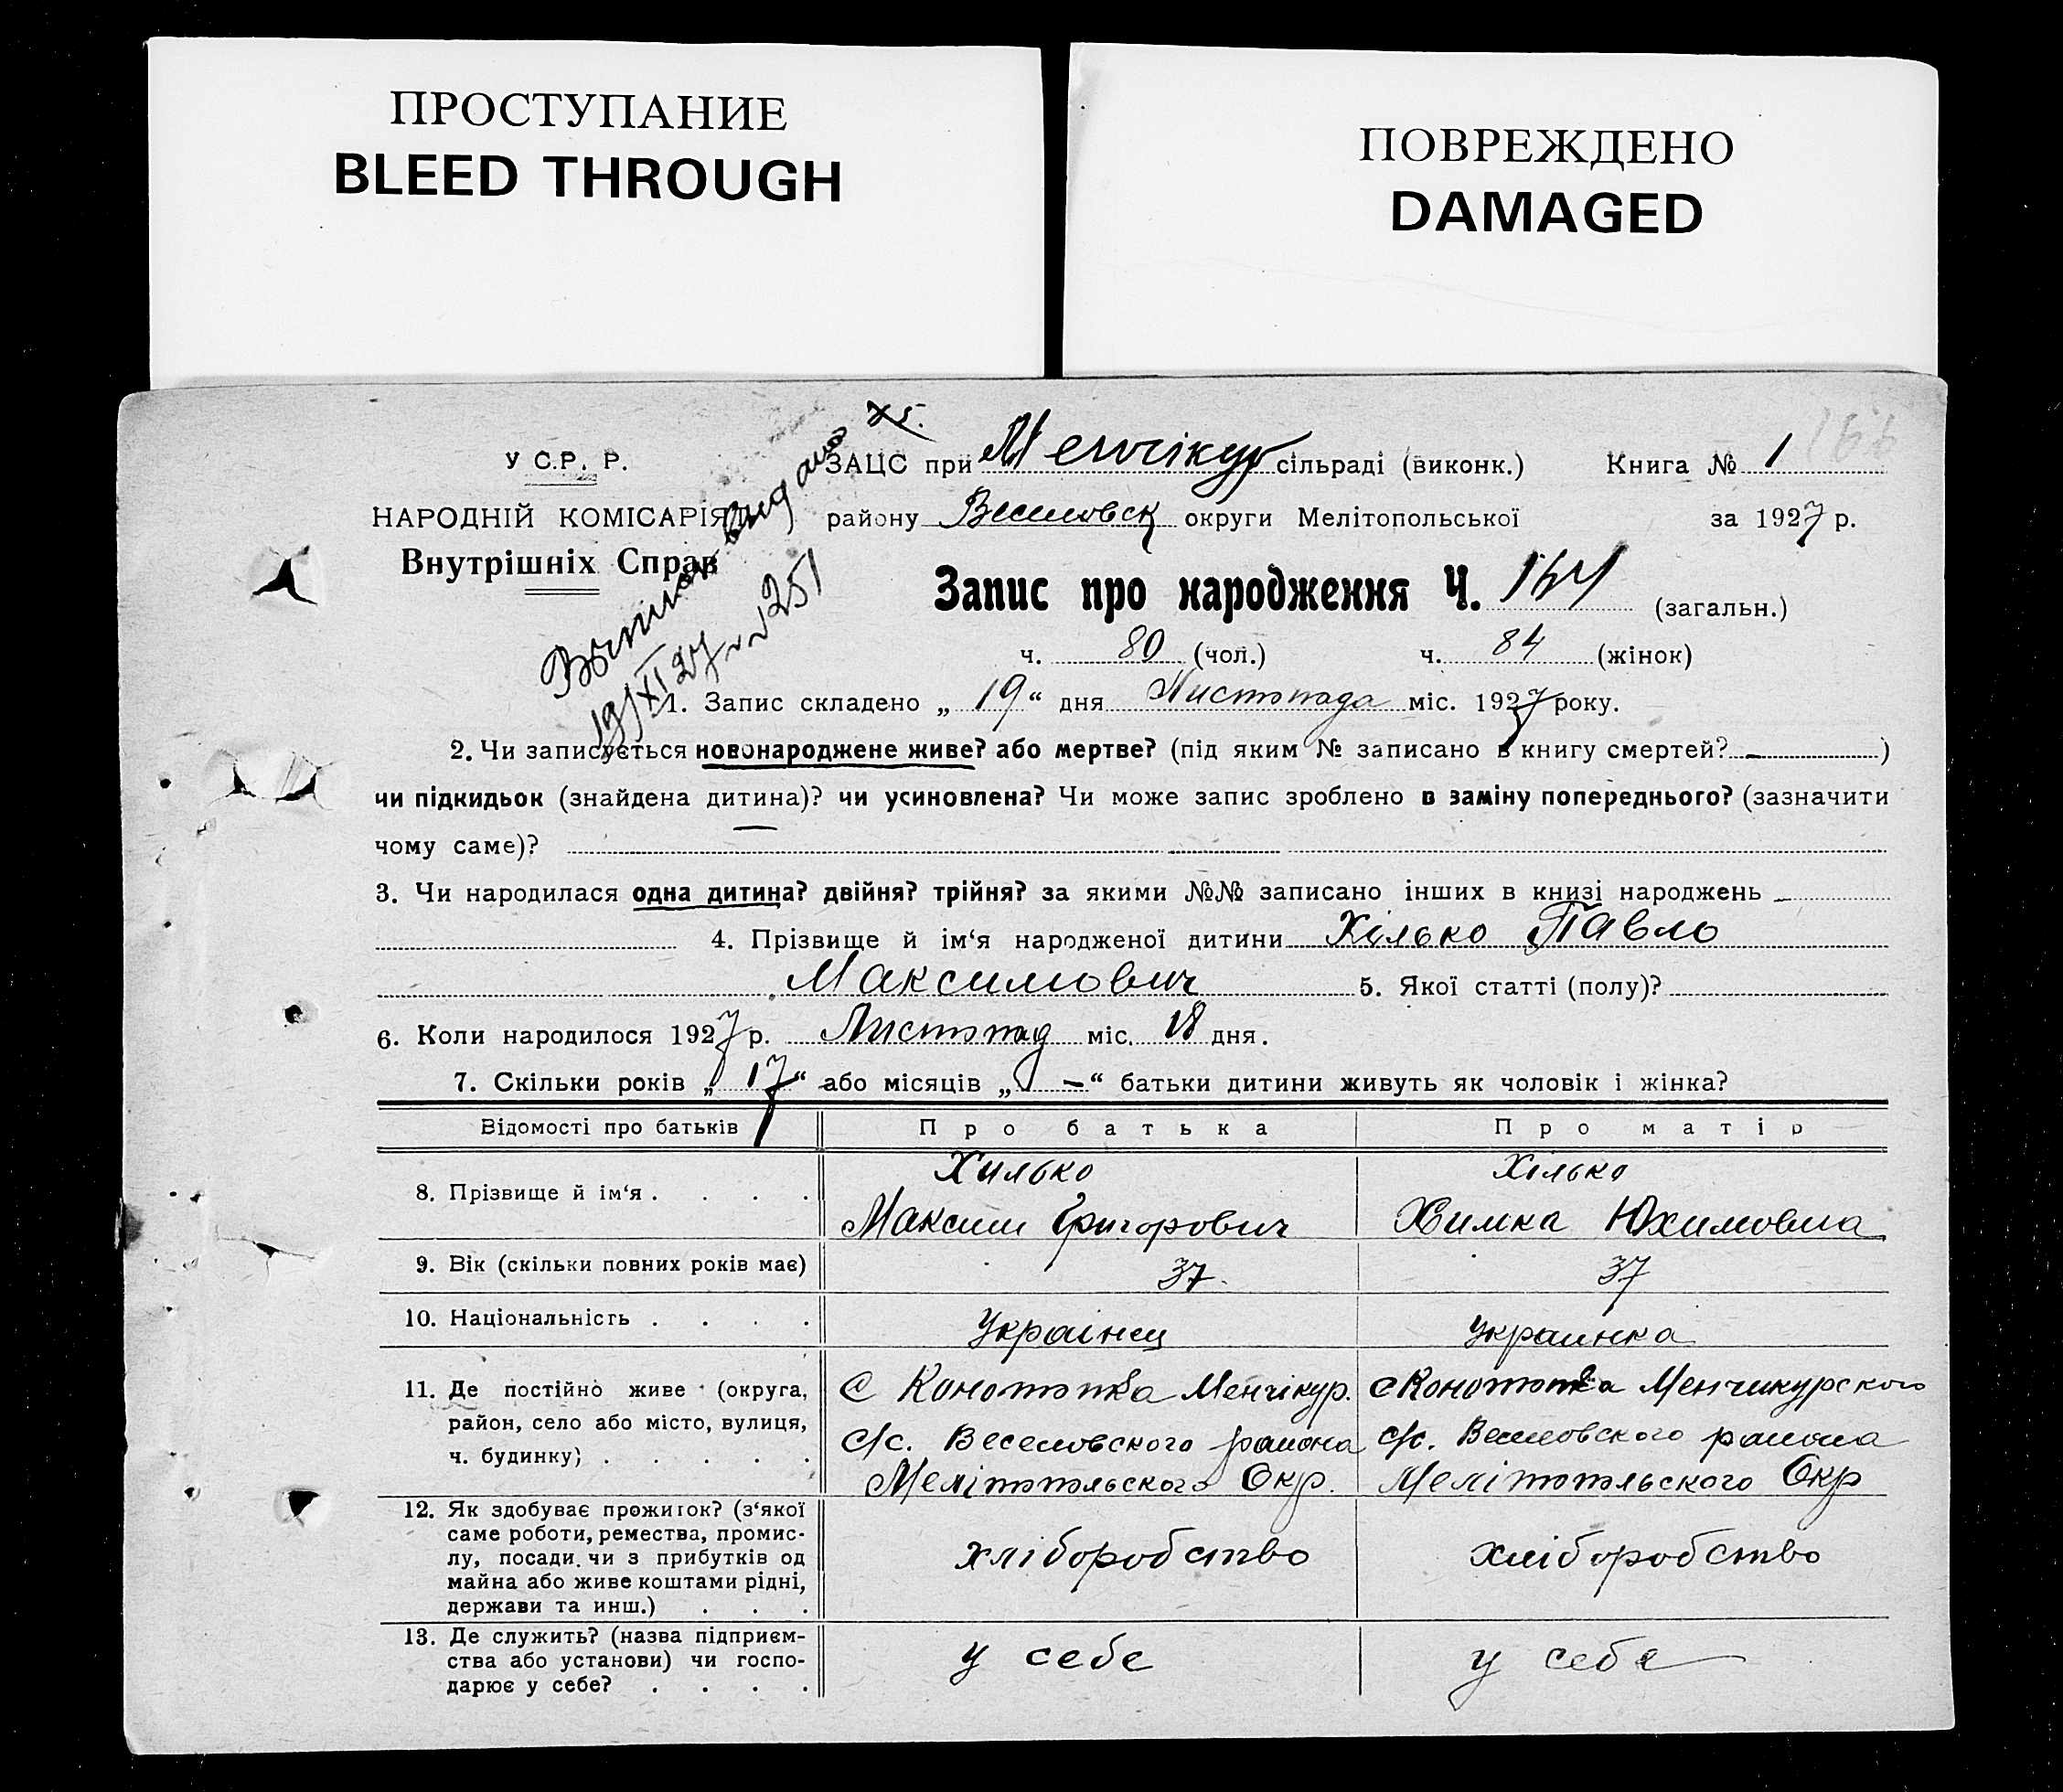 ПРОСТУПАНИЕ
BLEED THROUGH
ПОВРЕЖДЕНО
DAMAGED
У С.Р. Р.
НАРОДНІЙ КОМІСАРІЯ
Внутрішніх Справ
19/XI 27 №251
ЗАЦС при Менчікур сільраді (виконк.) Книга № 1
району Веселовск округи Мелітопольської за 1927 р.
Запис про народження Ч. 164 (загальн.)
ч. 80 (чол.) ч. 84 (жінок)
1. Запис складено „ 19 “ дня Листопада міс. 1927 року.
2. Чи записується новонароджене живе? або мертве? (під яким № записано в книгу смертей? – )
чи підкидьок (знайдена дитина)? чи усиновлена? Чи може запис зроблено в заміну попереднього? (зазначити
чому саме)? —
3. Чи народилася одна дитина? двійня? трійня? за якими №№ записано інших в книзі народжень –
4. Прізвище й ім‘я народженої дитини Хілько Павло
Максимович 5. Якої статті (полу)?
6. Коли народилося 1927 р. Листопад міс. 18 дня.
7. Скільки років „ 17 “ або місяців „ – “ батьки дитини живуть як чоловік і жінка?
Відомості про батьків Про батька Про матір
8. Прізвище й ім‘я . . . . Хилько Максим Григорович Хілько Химка Юхимовна
9. Вік (скільки повних років має) 37. 37
10. Національність . . . . Украінец Украинка
11. Де постійно живе (округа, С Конотопка Менчікур. с Конотопка Менчикурского
район, село або місто, вулиця, с/с. Веселовского района с/с. Веселовского района
ч. будинку) . . . . . Мелітопольского Окр. Мелітопольского Окр
12. Як здобуває прожиток? (з‘якої
саме роботи, ремества, промис-
лу, посади, чи з прибутків од хліборобство хліборобство
майна або живе коштами рідні,
держави та инш.) . . .
13. Де служить? (назва підприєм-
ства або установи) чи госпо- у себе у себе
дарює у себе? . . . .